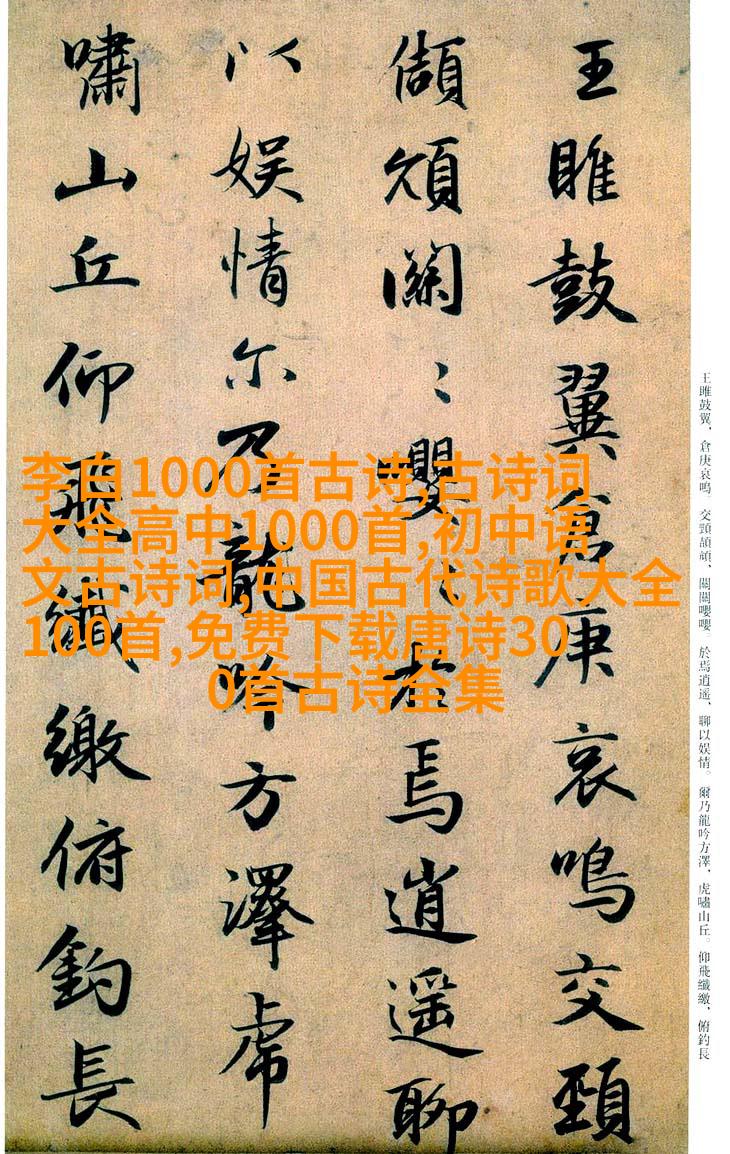 王雎鼓翼倉庚哀鳴交頸
頡頏關〻嚶〻於焉逍遥聊
以娱情尔乃龍吟方澤虎
嘯山丘仰飛纖繳俯釣長
李白1000首古诗,古诗词
大全高中1000首,初中语
文古诗词,中国古代诗歌大全
100首,免费下载唐诗30
0首古诗全集
王雎鼓翼、倉庚哀鳴。交頸頡頏、關關嚶嚶。於焉逍遥、聊以娱情。爾乃龍吟方澤、虎嘯山丘。仰飛纖繳、俯釣長